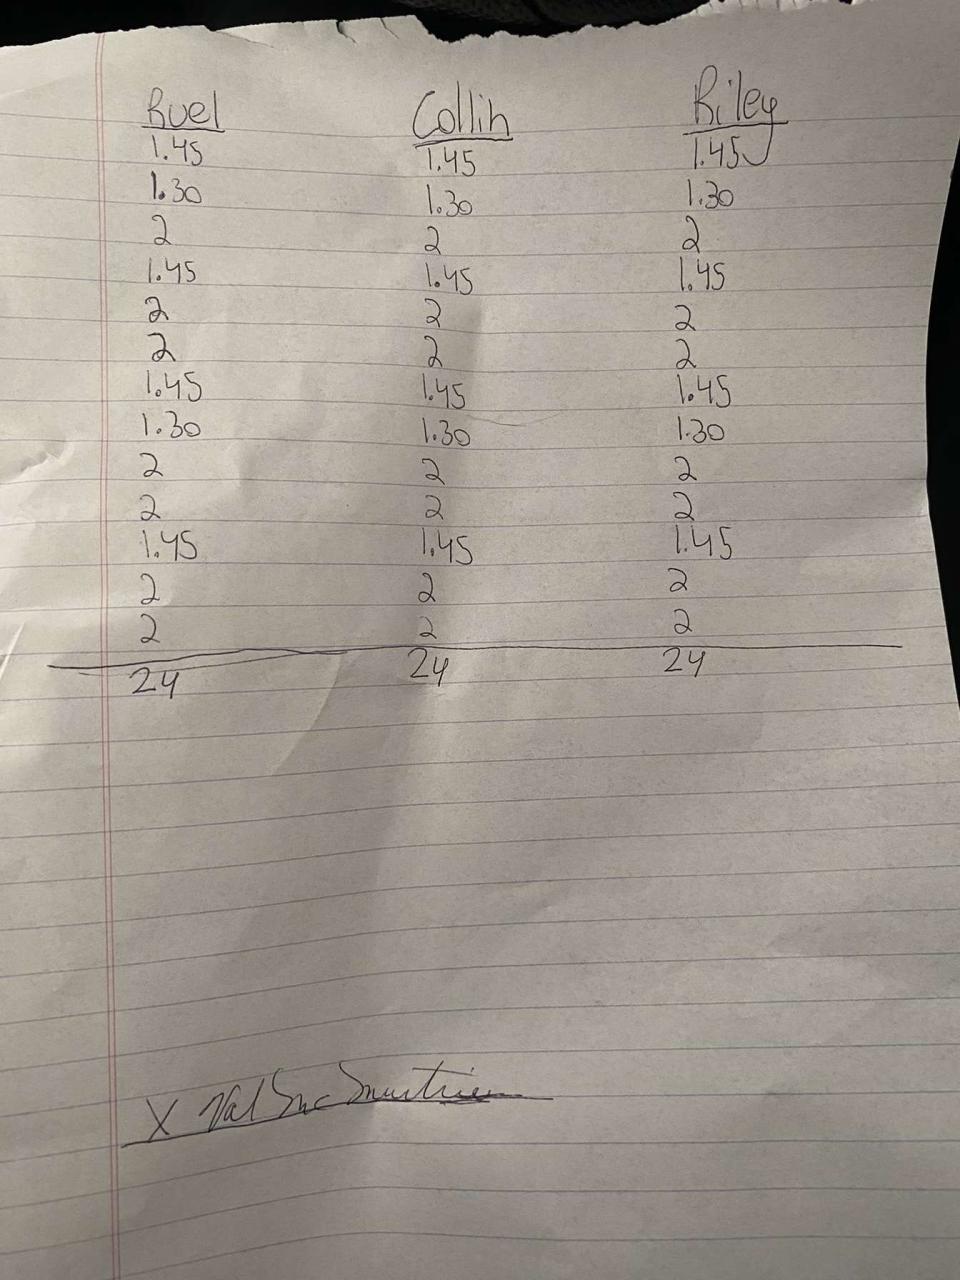 Ruel Collin Riley
1.45 1.45 1.45
1.30 1.30 1.30
2 2 2
1.45 1.45 1.45
2 2 2
2 2 2
1.45 1.45 1.45
1.30 1.30 1.30
2 2 2
2 2 2
1.45 1.45 1.45
2 2 2
2 2 2
24 24 24
X